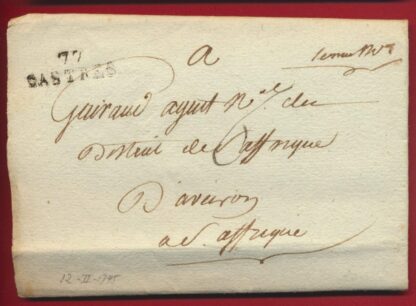 77
CASTRES
a
Guiraud agent N.al du
District de S.t affrique
D'aveiron
a S.t affrique
12-II-1795